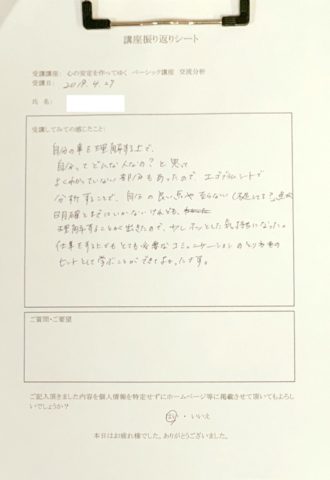 講座振り返りシート
受講講座： 心の安定を作ってゆく ベーシック講座 交流分析
受講日： 2019.4.27
氏 名：
受講してみての感じたこと：
自分の事を理解する上で、
自分ってどんな人なの？と実は
よくわかっていない部分もあったので、エゴグラムシートで
分析することで、自分の良い点や足らない
明確とまではいかないけれども、
理解することが出来たので、少しホッとした気持になった。
仕事をする上でもとても必要なコミュニケーションのとり方の
ヒントとして学ぶことができてよかったです。
ご質問・ご要望
ご記入頂きました内容を個人情報を特定せずにホームページ等に掲載させて頂いてもよろし
いでしょうか？
はい ・ いいえ
本日はお疲れ様でした。ありがとうございました。